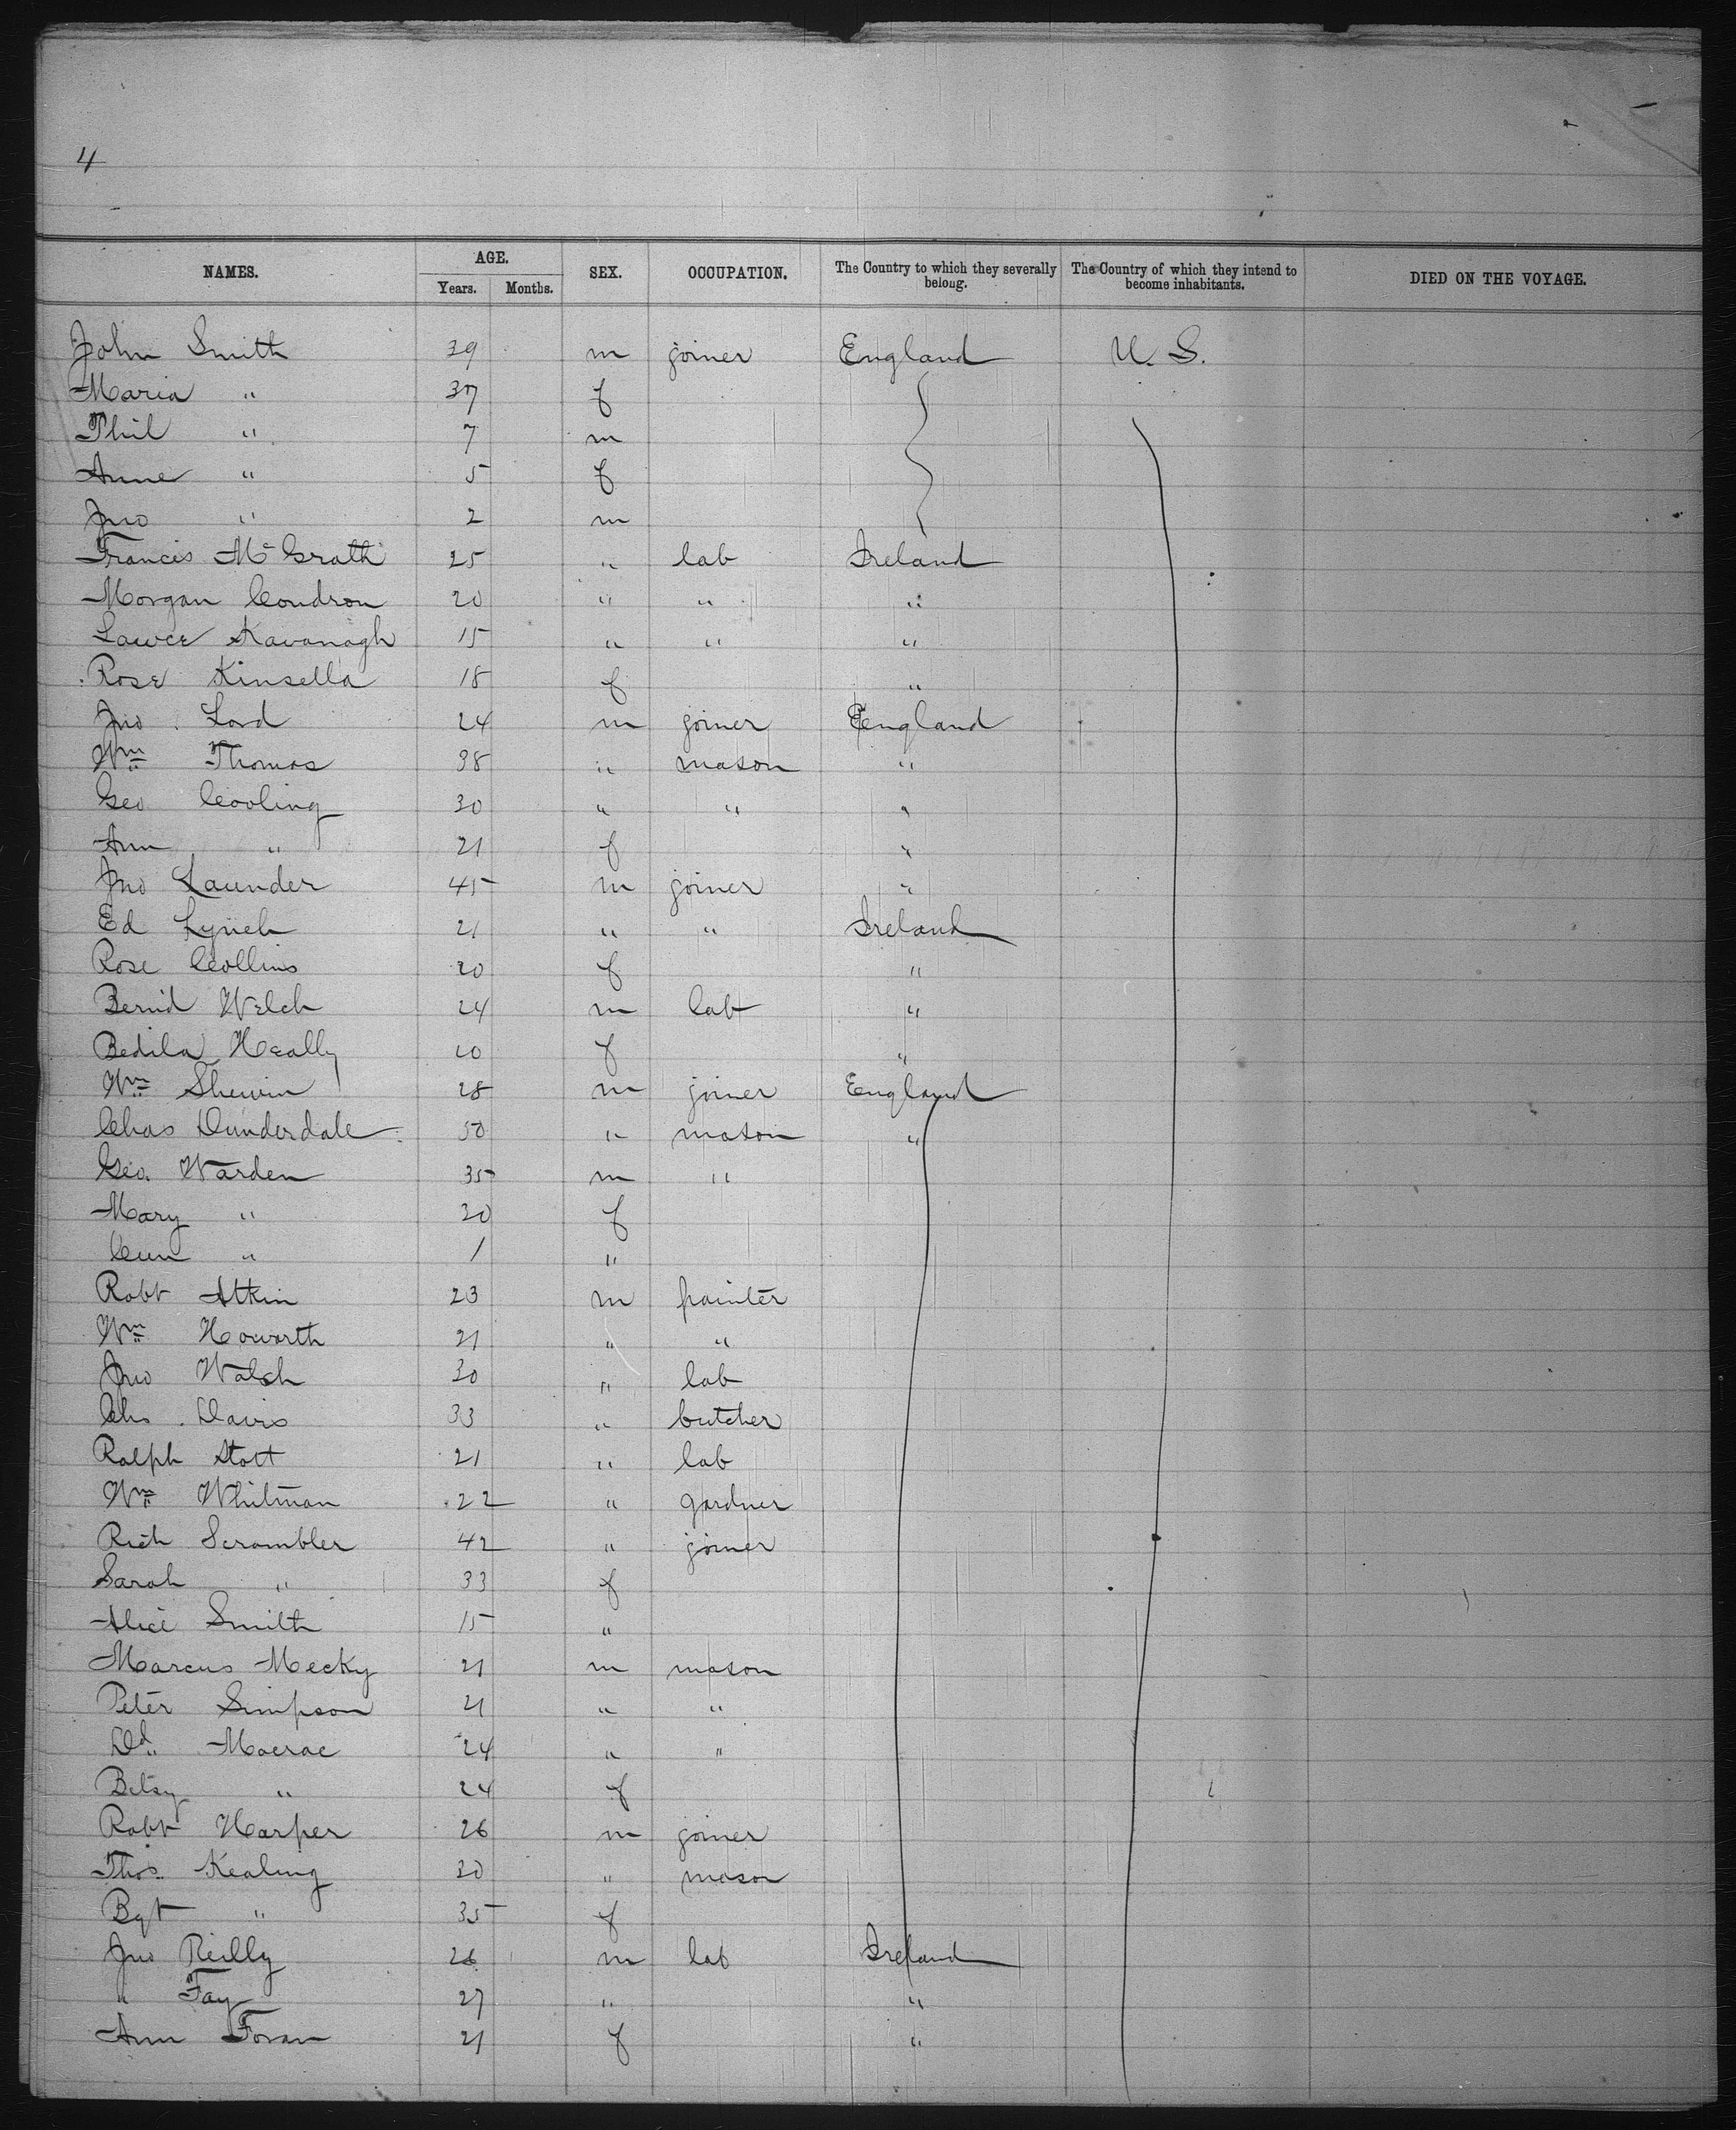 4
NAMES. AGE. Years. Months. SEX. OCCUPATION. The Country to which they severally belong. The Country of which they intend to become inhabitants. DIED ON THE VOYAGE.
John Smith 39 m joiner England U. S.
Maria " 37 f
Phil " 7 m
Anne " 5 f
Jno " 2 m
Francis McGrath 25 " lab Ireland
Morgan Condron 20 " " "
Lawce Kavanagh 15 " " "
Rose Kinsella 18 f "
Jno Lord 24 m joiner England
Wm Thomas 38 " mason "
Geo Cooling 30 " " "
Ann " 21 f "
Jno Launder 45 m joiner "
Ed Lynch 21 " " Ireland
Rose Collins 20 f "
Bernd Welch 24 m lab "
Bedila Heally 20 f "
Wm Shewin 28 m joiner England
Chas Dunderdale 50 " mason "
Geo. Warden 35 m "
Mary " 30 f
" 1 "
Robt Atkin 23 m painter
Wm Howarth 21 " "
Jno Walsh 30 " lab
Chs. Davis 33 " butcher
Ralph Stott 21 " lab
Wm Whitman 22 " gardner
Rich Scrambler 42 " joiner
Sarah " 33 f
Alice Smith 15 "
Marcus Mecky 21 m mason
Peter Simpson 21 " "
Dd Macrae 24 " "
Betsy " 24 f
Robt Harper 26 m joiner
Thos. Kealing 30 " mason
Bgt " 35 f
Jno Reilly 26 m lab Ireland
" Fay 27 " "
Ann Foran 21 f "